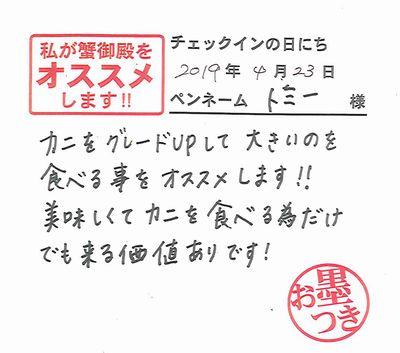 私が蟹御殿を
オススメ
します!!
チェックインの日にち
2019年4月23日
ペンネーム トミー 様
カニをグレードUPして大きいのを
食べる事をオススメします!!
美味しくてカニを食べる為だけ
でも来る価値ありです!
お墨つき